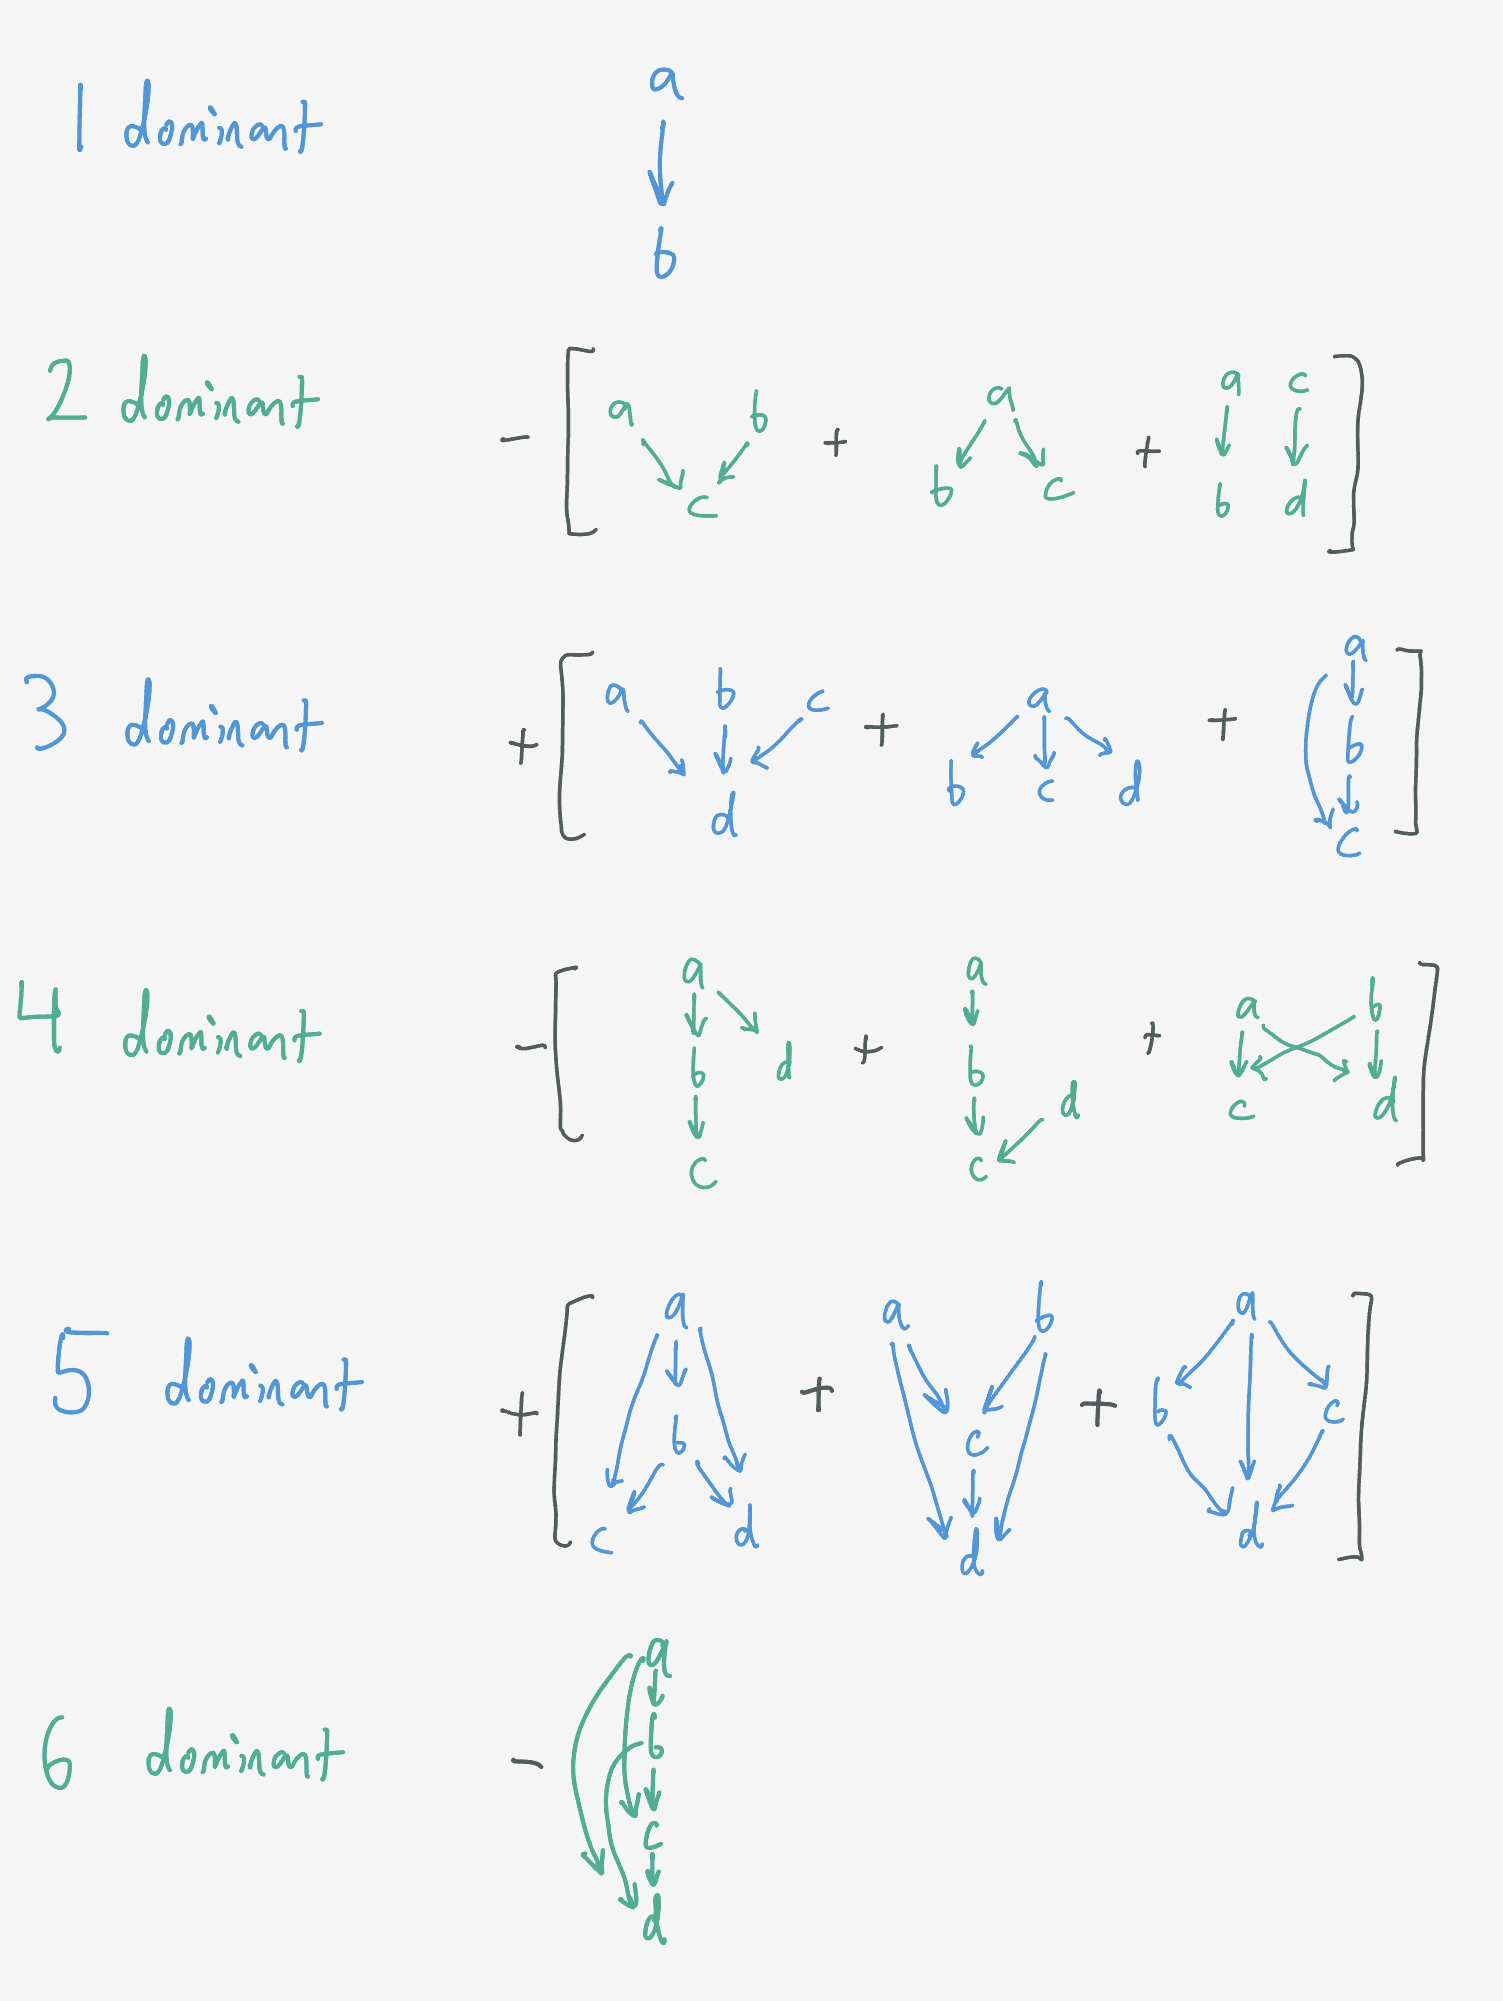 1 dominant
a
b
2 dominant
- [ a b c + a b c + a c b d ]
3 dominant
+ [ a b c d + a b c d + a b c ]
4 dominant
- [ a b d c + a b d c + a b c d ]
5 dominant
+ [ a b c d + a b c d + a b c d ]
6 dominant
- a
b
c
d